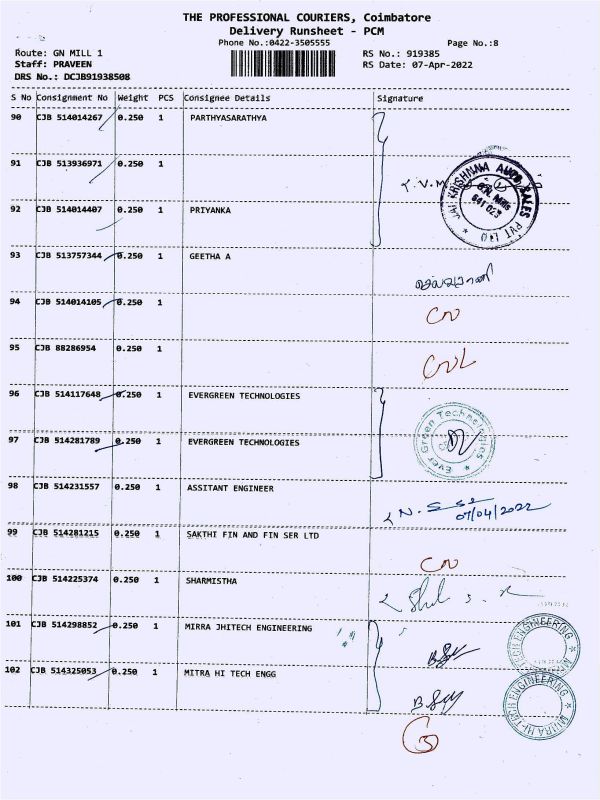 THE PROFESSIONAL COURIERS, Coimbatore
Delivery Runsheet - PCM
Phone No.:0422-3505555 Page No.:8
Route: GN MILL 1 RS No.: 919385
Staff: PRAVEEN RS Date: 07-Apr-2022
DRS No.: DCJB91938508
S No Consignment No Weight PCS Consignee Details Signature
90 CJB 514014267 0.250 1 PARTHYASARATHYA
91 CJB 513936971 0.250 1
JAI KRISHNNA AUTO SALES PVT LTD
G.N. Mills
641 029
92 CJB 514014407 0.250 1 PRIYANKA
93 CJB 513757344 0.250 1 GEETHA A
94 CJB 514014105 0.250 1
95 CJB 88286954 0.250 1
96 CJB 514117648 0.250 1 EVERGREEN TECHNOLOGIES
Ever Green Technologies
97 CJB 514281789 0.250 1 EVERGREEN TECHNOLOGIES
98 CJB 514231557 0.250 1 ASSITANT ENGINEER
07/04/2022
99 CJB 514281215 0.250 1 SAKTHI FIN AND FIN SER LTD
100 CJB 514225374 0.250 1 SHARMISTHA
101 CJB 514298852 0.250 1 MIRRA JHITECH ENGINEERING
102 CJB 514325053 0.250 1 MITRA HI TECH ENGG
MITRA HI-TECH ENGINEERING